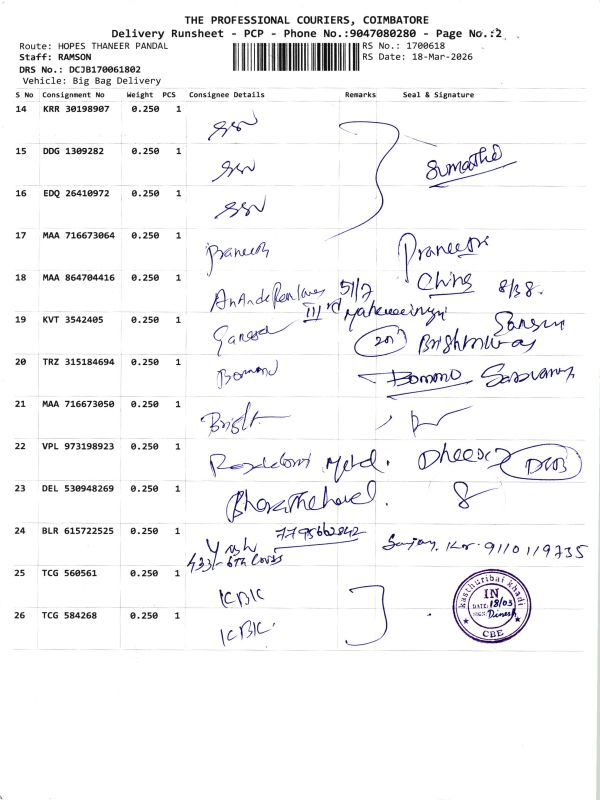 THE PROFESSIONAL COURIERS, COIMBATORE
Delivery Runsheet - PCP - Phone No.:9047080280 - Page No.:2
Route: HOPES THANEER PANDAL
RS No.: 1700618
Staff: RAMSON
RS Date: 18-Mar-2026
DRS No.: DCJB170061802
Vehicle: Big Bag Delivery
S No Consignment No Weight PCS Consignee Details Remarks Seal & Signature
14 KRR 30198907 0.250 1 SSN
15 DDG 1309282 0.250 1 SSN Sumathi
16 EDQ 26410972 0.250 1 SSN
17 MAA 716673064 0.250 1 Praneeth Praneeth
18 MAA 864704416 0.250 1 51/7 8/38.
III rd
19 KVT 3542405 0.250 1 Ganesh Brightways
20 TRZ 315184694 0.250 1 Bommi Bommi
21 MAA 716673050 0.250 1 Bright
22 VPL 973198923 0.250 1 Metal.
23 DEL 530948269 0.250 1
24 BLR 615722525 0.250 1 Yash 7795662842 Sanjay. Kr. 9110119735
433/- 6th Cross
25 TCG 560561 0.250 1 ICBIC
26 TCG 584268 0.250 1 ICBIC
kasthuribai khadi
IN
DATE: 18/03
SIGN: Dinesh
CBE